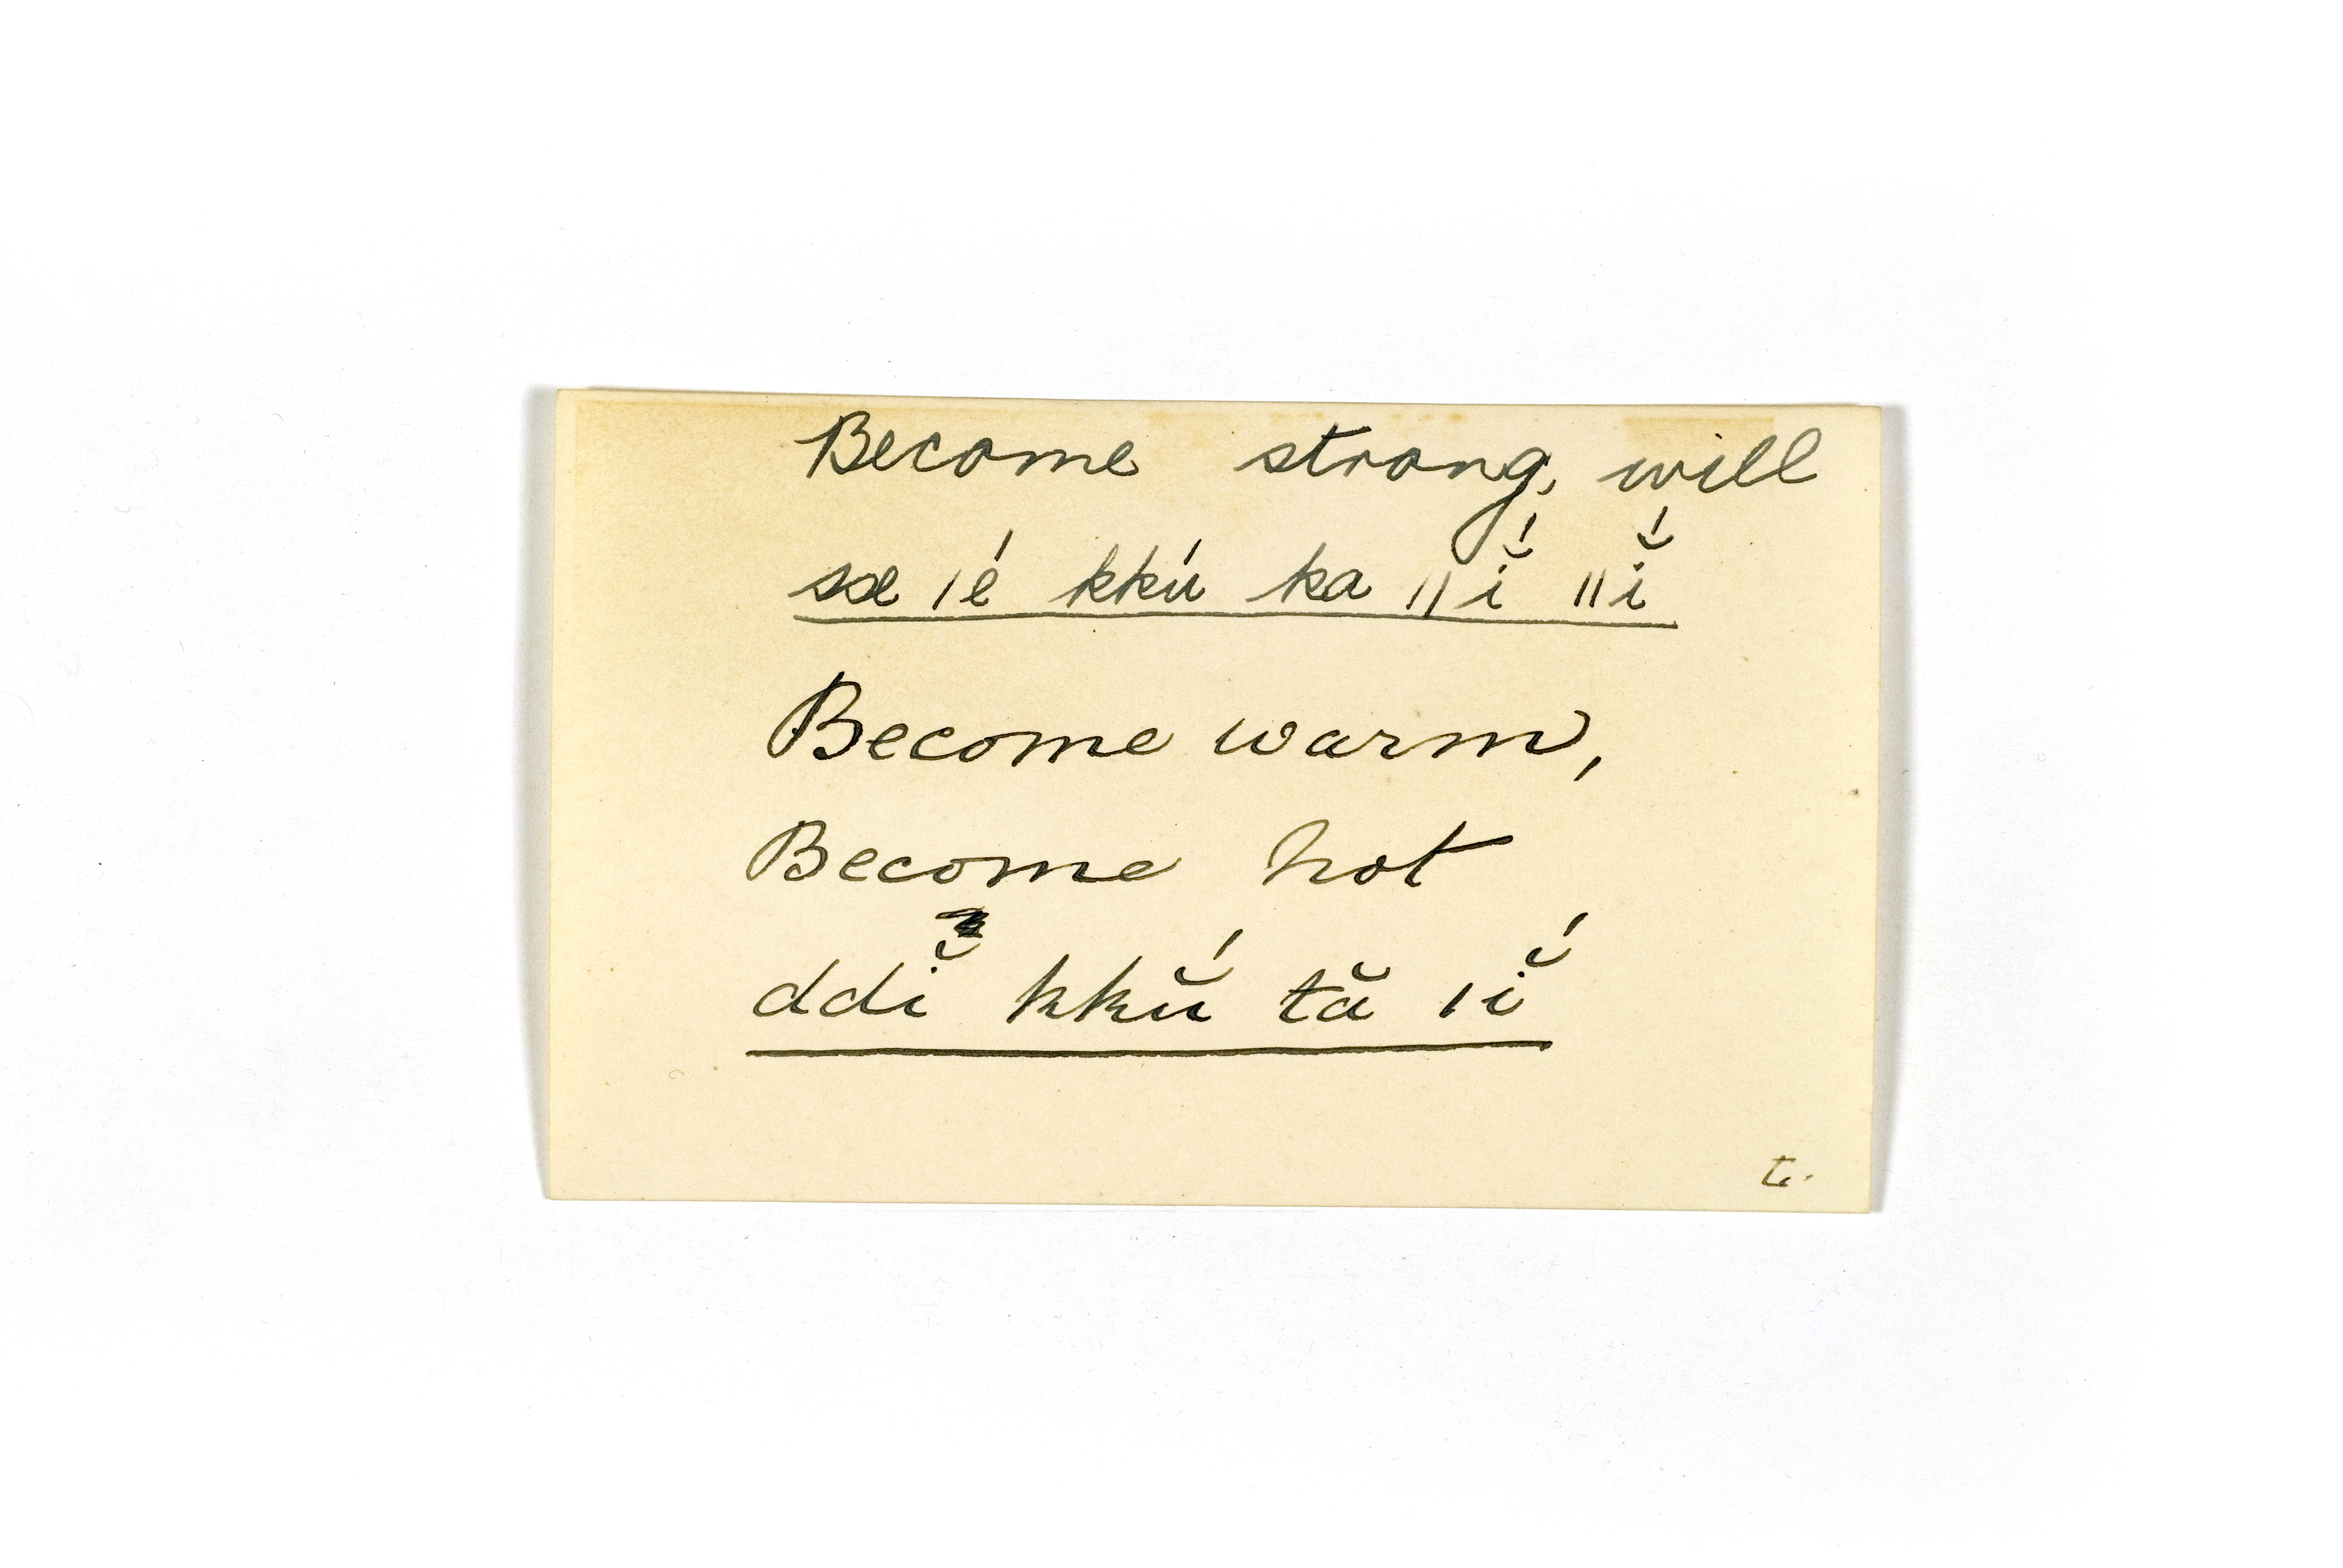 Become strong, will
sæ ıé kkú ka ıı ĭ́ ıı ĭ́
Become warm,
Become hot
ddĭ kkŭ́ tă ı ĭ́
t.